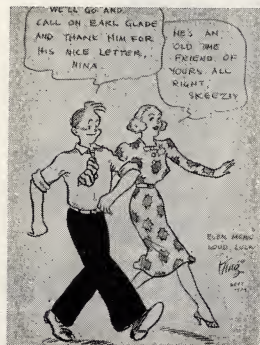 WE'LL GO AND
CALL ON EARL GLADE
AND THANK HIM FOR
HIS NICE LETTER,
NINA.
HE'S AN
OLD TIME
FRIEND OF
YOURS ALL
RIGHT,
SKEEZIX
GOOD LUCK
King